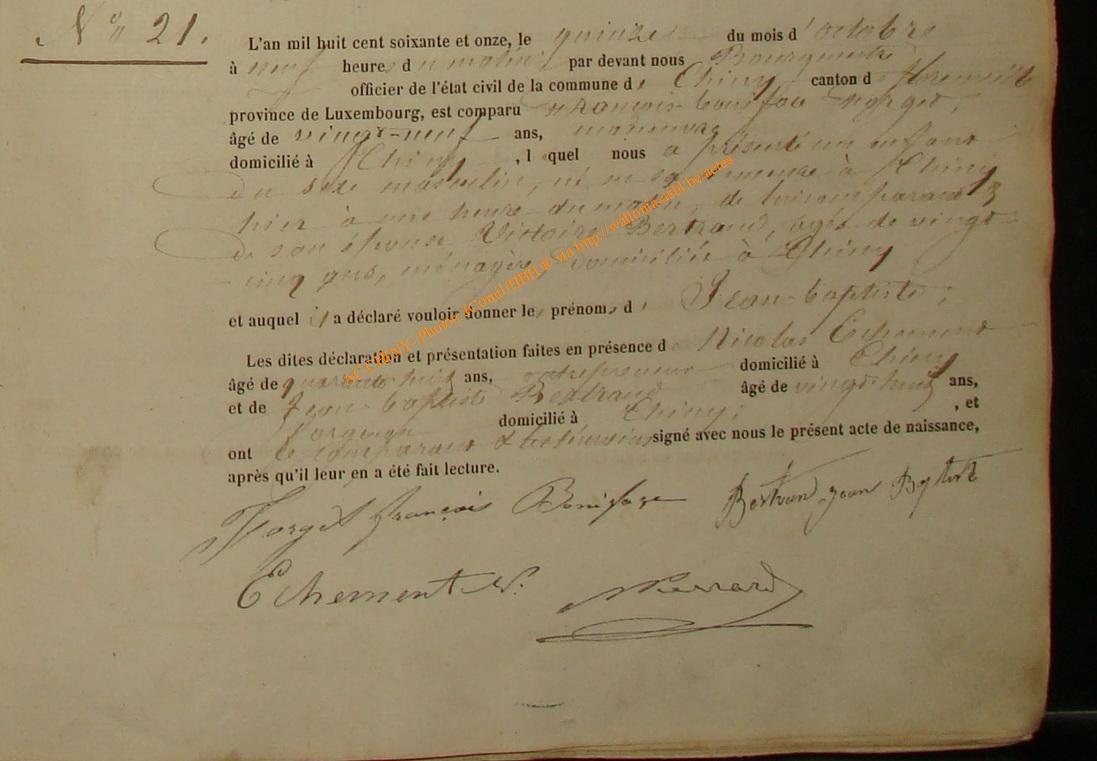 N° 21.
L'an mil huit cent soixante et onze, le quinze du mois d'octobre
à neuf heures du matin par devant nous Bourgmestre
officier de l'état civil de la commune de Chiny canton de Florenville
province de Luxembourg, est comparu François-Boniface Forget,
âgé de vingt-neuf ans, manœuvre
domicilié à Chiny, lequel nous a présenté un enfant
du sexe masculin, né en sa demeure à Chiny
hier à une heure du matin, de lui comparant &
de son épouse Victoire Bertrand, agée de vingt
cinq ans, ménagère domiciliée à Chiny
et auquel il a déclaré vouloir donner les prénoms de Jean-baptiste;
Les dites déclaration et présentation faites en présence de Nicolas Echement
âgé de quarante huit ans, entrepreneur domicilié à Chiny
et de Jean-baptiste Bertrand âgé de vingt-huit ans,
domicilié à Chiny; , et
ont le comparant & les témoins signé avec nous le présent acte de naissance,
après qu'il leur en a été fait lecture.
Forget françois Boniface Bertrand jean Baptiste
Echement N. Pierrard